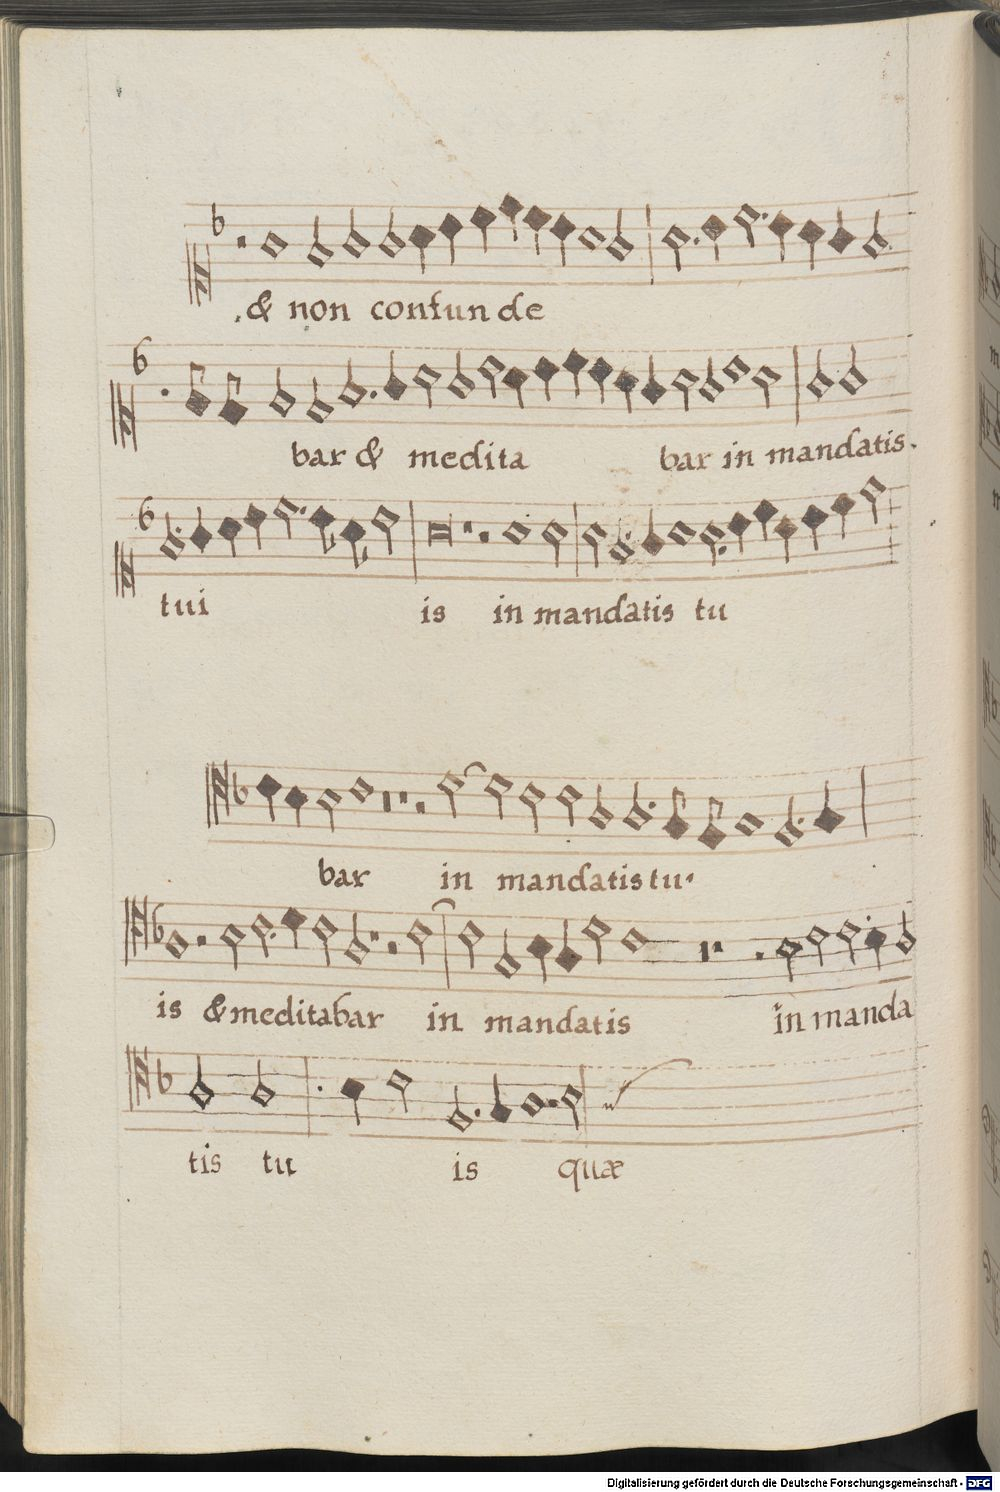 & non confun de
bar & medita bar in mandatis
tui is in mandatis tu
bar in mandatis tu
is & meditabar in mandatis in manda
tis tu is quæ
Digitalisierung gefördert durch die Deutsche Forschungsgemeinschaft - DFG